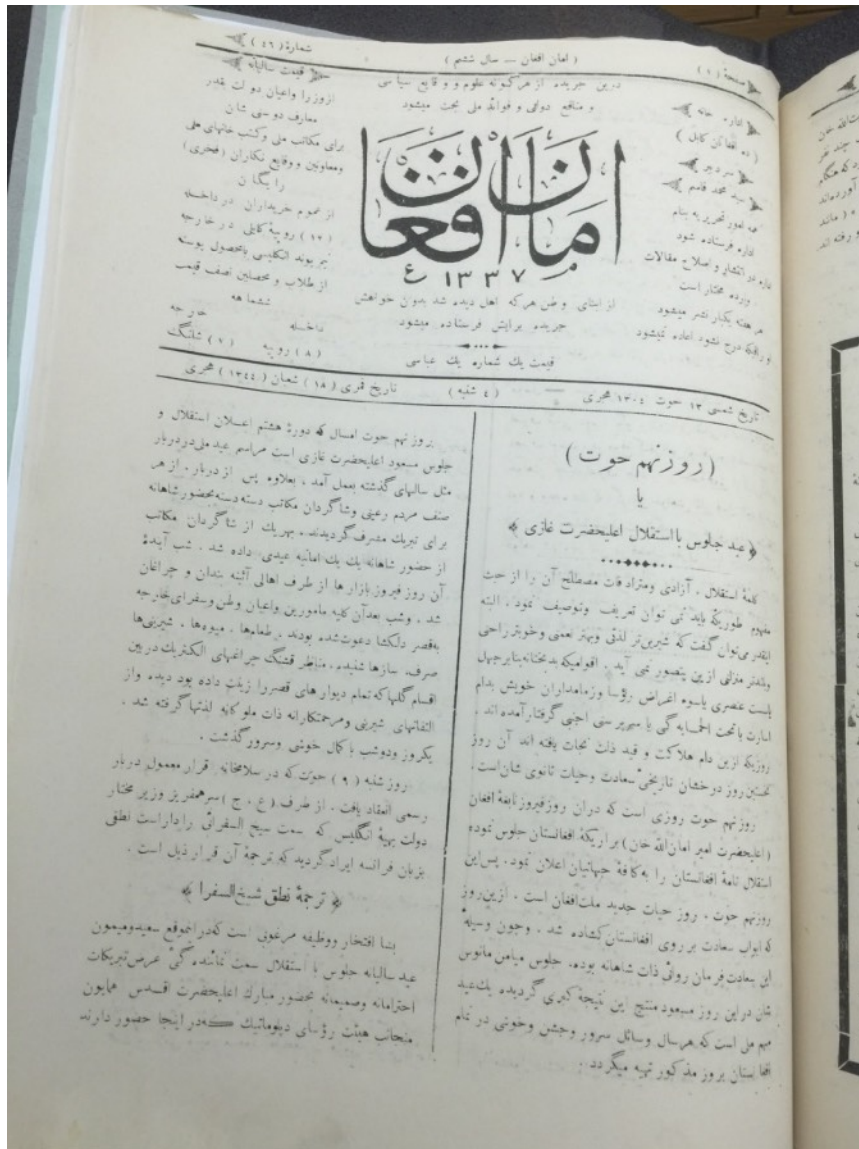 صفحهٔ (۱)
( امان افغان — سال ششم )
شمارهٔ (٤٦)
اداره خانه
( ده افغانان کابل )
سر دبیر
سید محمد قاسم
همه امور تحریر به بنام
اداره فرستاده شود
اداره در انتشار و اصلاح مقالات
وارده مختار است
هر هفته یکبار نشر میشود
اوراقیکه درج نشود اعاده نمیشود
درین جریده از هر گونه علوم و وقایع سیاسی
و منافع دولتی و فوائد ملی بحث میشود
امان افغان
۱۳۳۷ ع
از ابنای وطن هر که اهل دیده شد بدون خواهش
جریده برایش فرستاده میشود
قیمت یك شماره یك عباسی
قیمت سالیانه
از وزرا واعیان دولت بقدر
معارف دوستی شان
برای مکاتب ملی وکتب خانهای ملی
ومعاونین و وقایع نکاران (فخری)
رایگان
از عموم خریداران در داخله
(۱۲) روپیهٔ کابلی در خارجه
نیم پوند انگلیسی بامحصول پوسته
از طلاب و محصلین نصف قیمت
ششماهه
داخله خارجه
(۸) روپیه (۱) شلنگ
تاریخ شمسی ۱۳ حوت ۱۳۰٤ هجری
(٤ شنبه)
تاریخ قمری (۱۸) شعبان (۱۳٤٤) هجری
(روز نهم حوت)
یا
﴿ عید جلوس با استقلال اعلیحضرت غازی ﴾
کلمهٔ استقلال ، آزادی ومترادفات مصطلح آن را از حیث
مفهوم طوریکه باید نمی توان تعریف وتوصیف نمود . البته
اینقدر می‌توان گفت که شیرین‌تر لذتی وبهتر نعمتی وخوبتر راحتی
وبلندتر منزلتی ازین بتصور نمی آید . اقوامیکه بدبختانه بنابر جهل
پست عنصری یاسوء اغراض رؤسا وزمامداران خویش بدام
اسارت یا تحت الحمایه گی یا سرپرستی اجنبی گرفتار آمده اند .
روزیکه ازین دام هلاکت و قید ذلت نجات یافته اند آن روز
نخستین روز درخشان تاریخی سعادت وحیات ثانوی شان است .
روز نهم حوت روزی است که در ان روز فیروز نابغهٔ افغان
(اعلیحضرت امیر امان‌الله خان) بر اریکهٔ افغانستان جلوس نموده
استقلال تامهٔ افغانستان را به کافهٔ جهانیان اعلان نمود . پس این
روز نهم حوت ، روز حیات جدید ملت افغان است . ازین روز
که ابواب سعادت بر روی افغانستان کشاده شد . وچون وسیلهٔ
این سعادت فرمان روائی ذات شاهانه بوده، جلوس میامن مانوس
شان در این روز مسعود منتج این نتیجهٔ کبری گردیده یك عید
مهم ملی است که هر سال وسائل سرور وجشن وخوشی در تمام
افغانستان بروز مذکور تهیه میگردد .
روز نهم حوت امسال که دورهٔ هشتم اعلان استقلال و
جلوس مسعود اعلیحضرت غازی است مراسم عید ملی در دربار
مثل سالهای گذشته بعمل آمد ، بعلاوه پس از دربار ، از هر
صنف مردم رعیتی وشاگردان مکاتب دسته دسته بحضور شاهانه
برای تبریك مشرف گردیدند ، بهریك از شاگردان مکاتب
از حضور شاهانه یك یك امانیه عیدی داده شد . شب آیندهٔ
آن روز فیروز بازار ها از طرف اهالی آئینه بندان و چراغان
شد . وشب بعد آن کلیه مامورین واعیان وطن وسفرای خارجه
به قصر دلکشا دعوت شده بودند ، طعام‌ها ، میوه‌ها ، شیرینی‌ها
صرف، سازها شنیده، مناظر قشنگ چراغهای الکتریك در بین
اقسام گلها که تمام دیوار های قصر را زینت داده بود دیده واز
التفاتهای شیرینی ومرحمتکارانه ذات ملوکانه لذتها گرفته شد .
یکروز ودوشب با کمال خوشی وسرور گذشت .
روز شنبه (۹) حوت که در سلامخانه قرار معمول دربار
رسمی انعقاد یافت . از طرف (ع ، ج) سر همفریز وزیر مختار
دولت بهیهٔ انگلیس که سمت شیخ السفرائی را داراست نطقی
بزبان فرانسه ایراد گردید که ترجمهٔ آن قرار ذیل است .
﴿ ترجمهٔ نطق شیخ السفرا ﴾
بسا افتخار ووظیفه مرغوبی است که در انموقع سعید ومیمون
عید سالیانه جلوس با استقلال سمت نماینده گی عرض تبریکات
احترامانه وصمیمانه بحضور مبارك اعلیحضرت اقدس همایون
منجانب هیئت رؤسای دیپلوماتیك که در اینجا حضور دارند